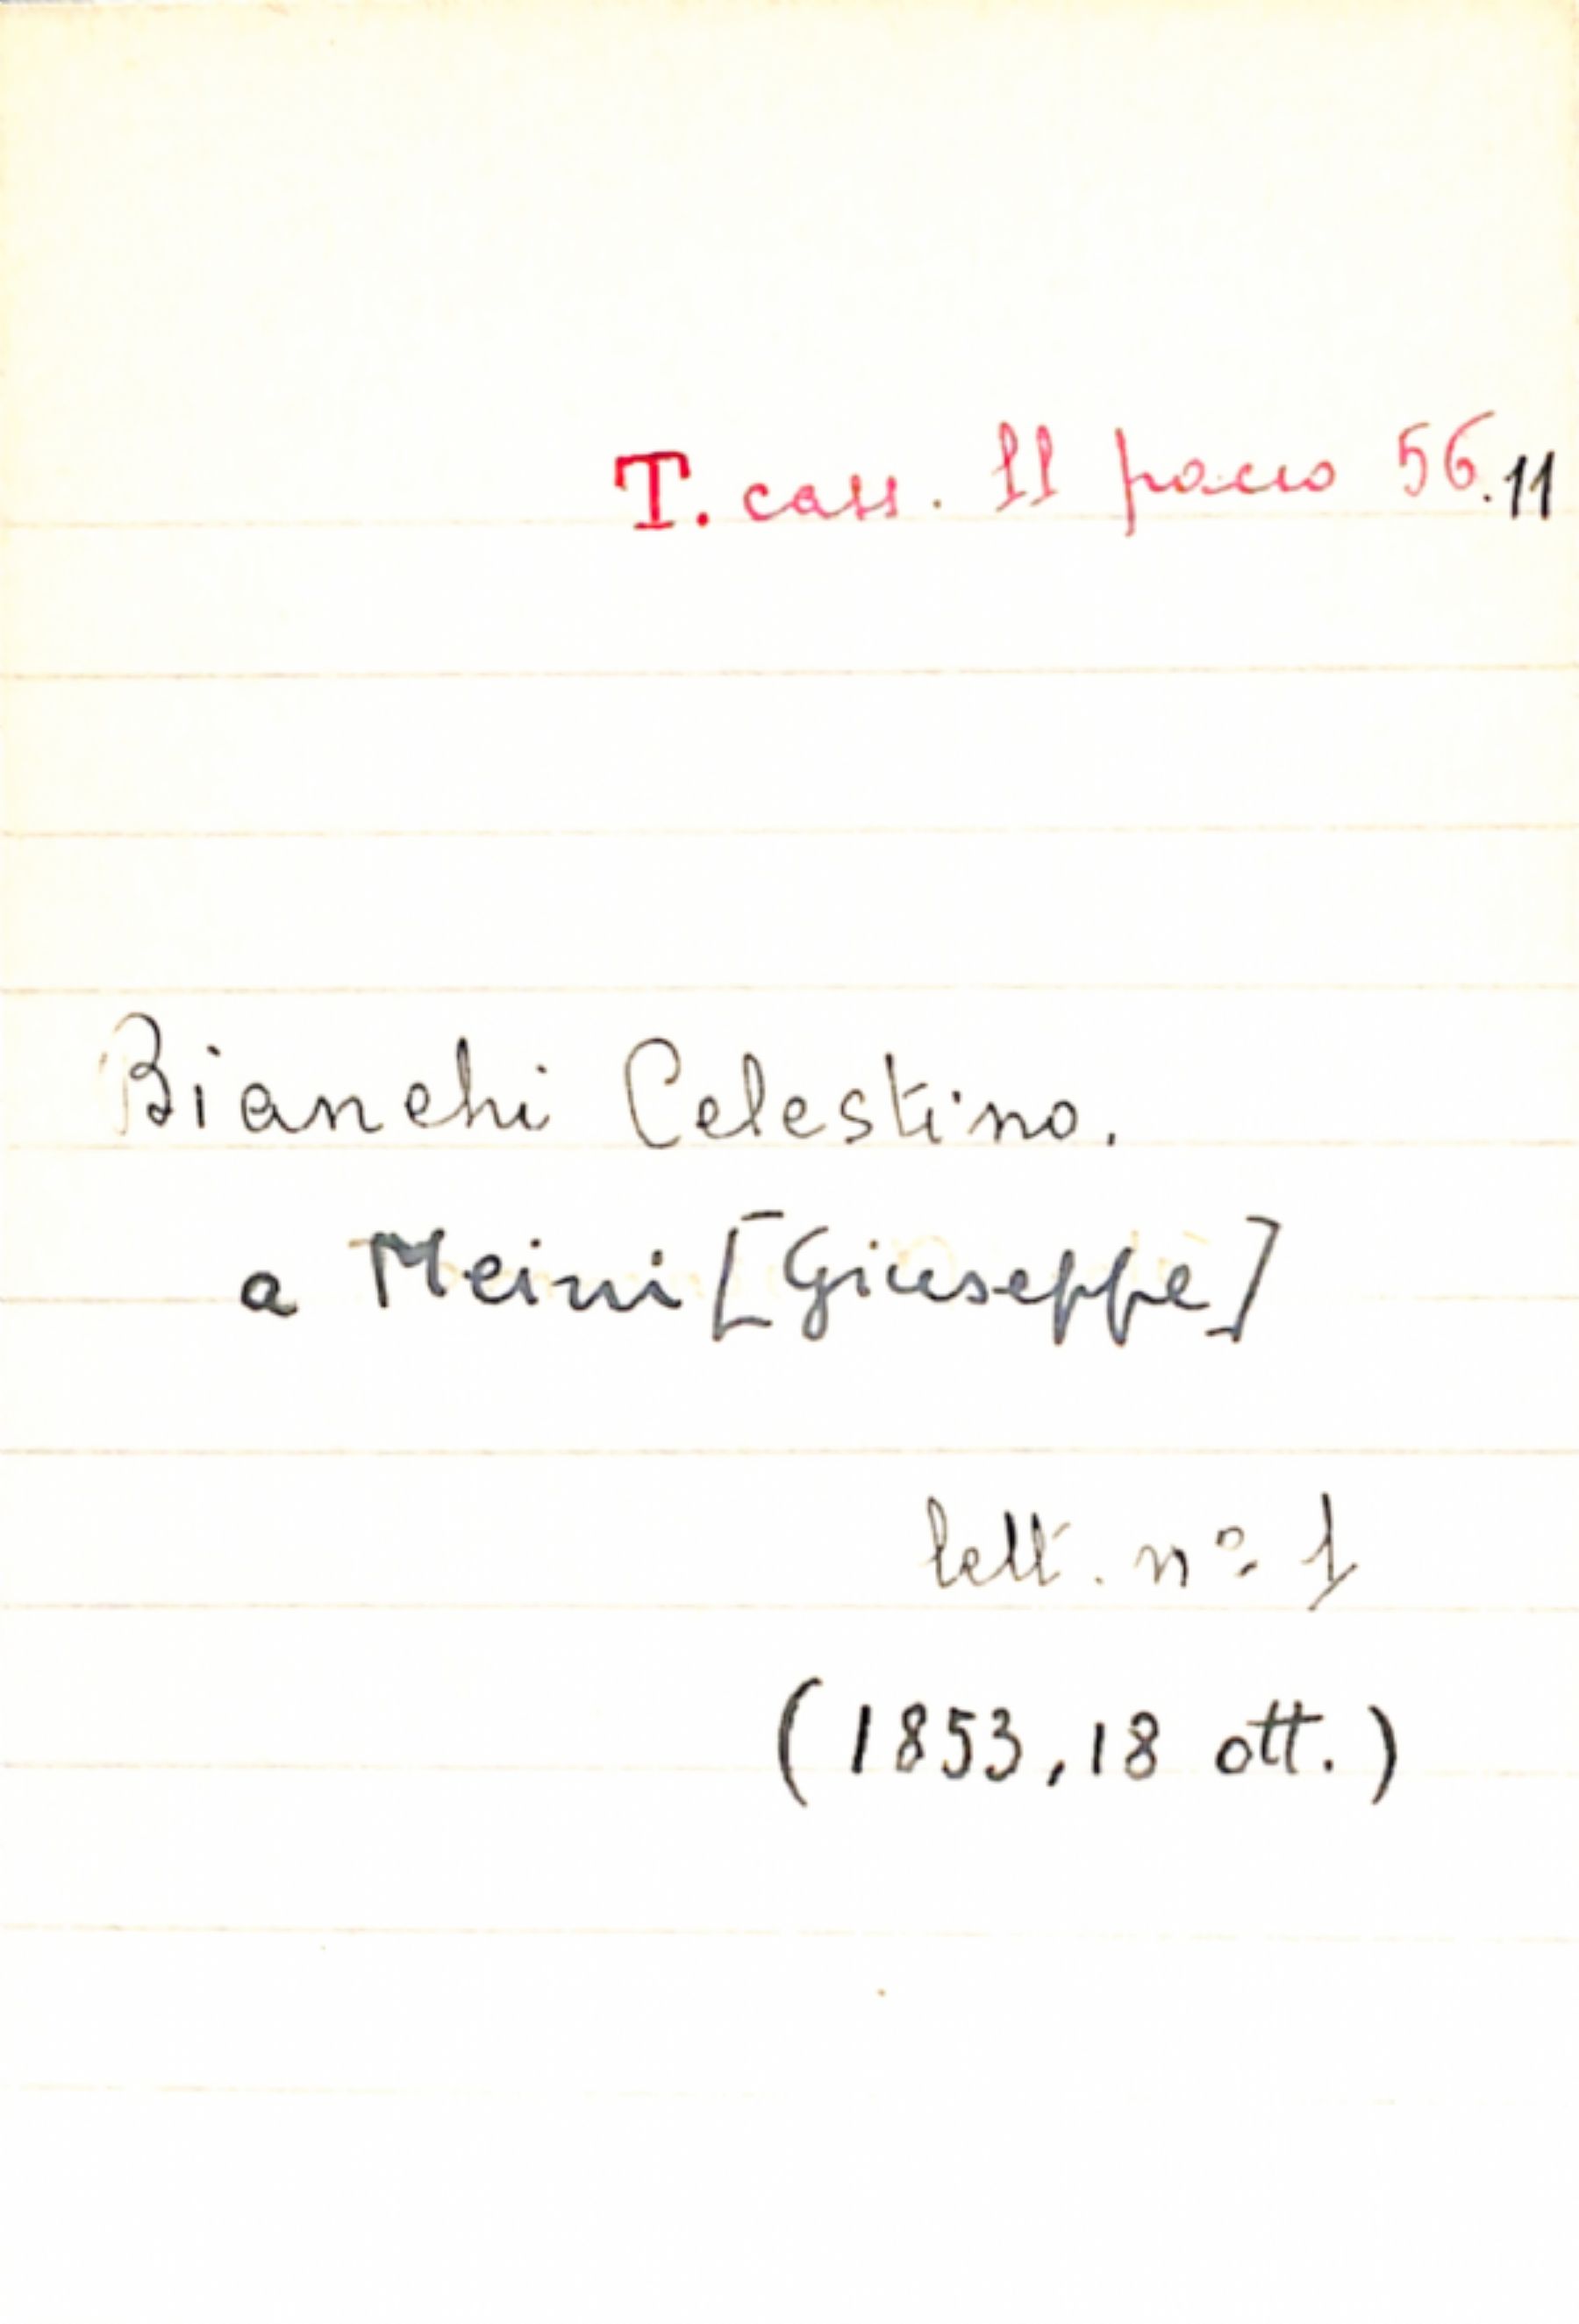 T. cass. 11 pacco 56.11
Bianchi Celestino.
a Meini [Giuseppe]
lett. nº 1
(1853, 18 ott.)